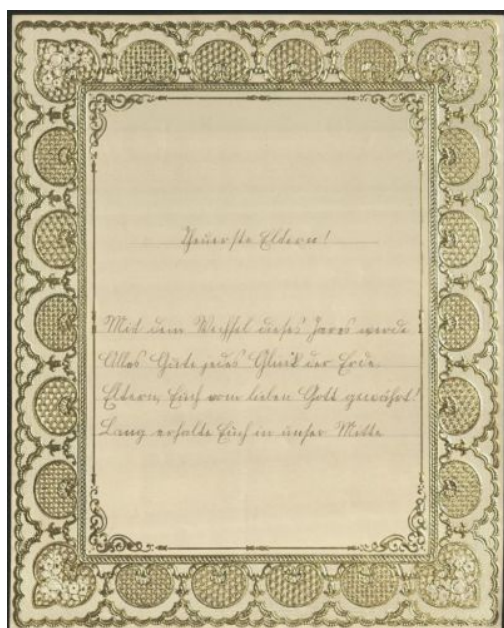 Theuerste Eldern!
Mit dem Wechsel dieses Jares werde
Alles Gute jedes Glück der Erde
Eltern, Euch vom lieben Gott gewährt!
Lang erhalte Euch in unser Mitte